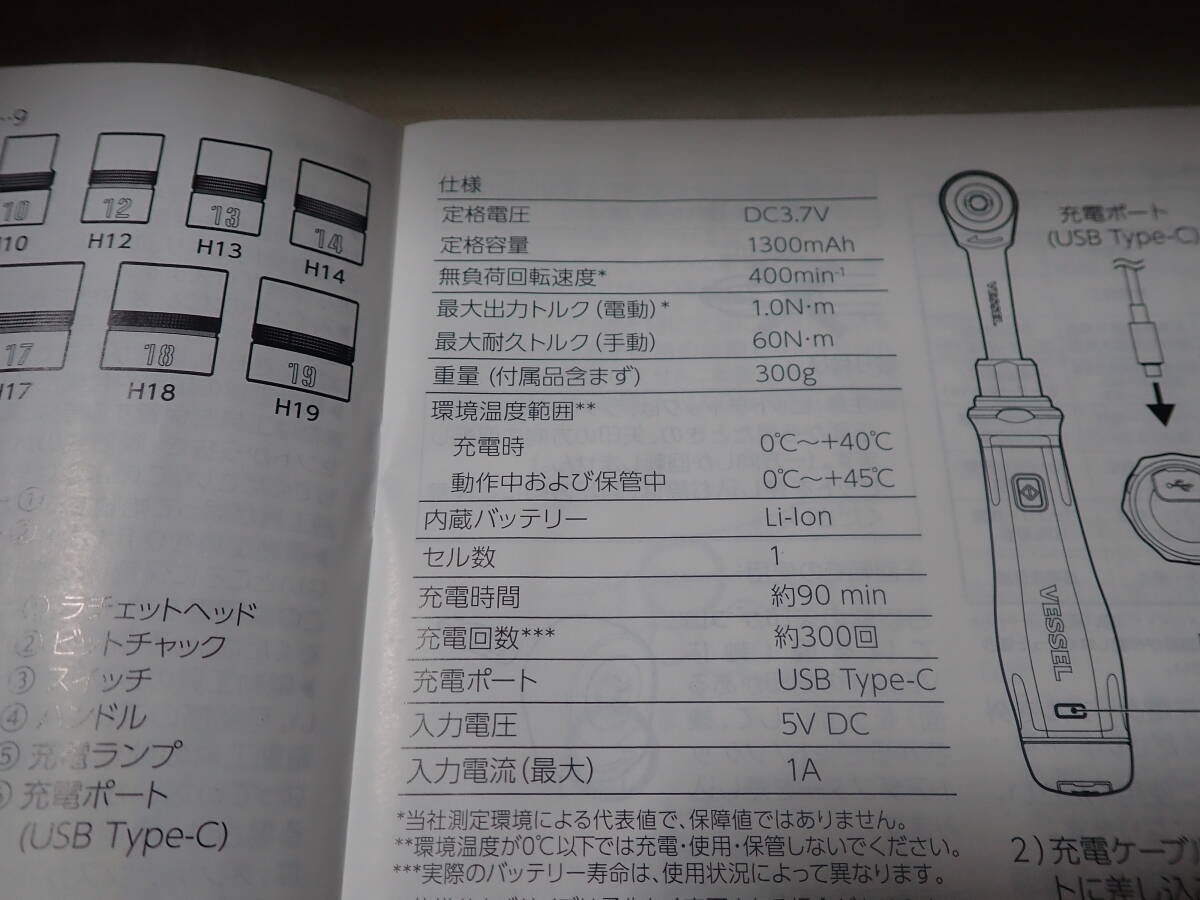 10
12
13
14
H12
H13
H14
17
18
19
H18
H19
① ラチェットヘッド
② ビットチャック
③ スイッチ
④ ハンドル
⑤ 充電ランプ
充電ポート
(USB Type-C)
仕様
定格電圧 DC3.7V
定格容量 1300mAh
無負荷回転速度* 400min-1
最大出力トルク(電動)* 1.0N・m
最大耐久トルク(手動) 60N・m
重量 (付属品含まず) 300g
環境温度範囲**
充電時 0℃～+40℃
動作中および保管中 0℃～+45℃
内蔵バッテリー Li-Ion
セル数 1
充電時間 約90 min
充電回数*** 約300回
充電ポート USB Type-C
入力電圧 5V DC
入力電流(最大) 1A
*当社測定環境による代表値で、保障値ではありません。
**環境温度が0℃以下では充電・使用・保管しないでください。
***実際のバッテリー寿命は、使用状況によって異なります。
充電ポート
(USB Type-C)
VESSEL
VESSEL
2) 充電ケーブル
トに差し込